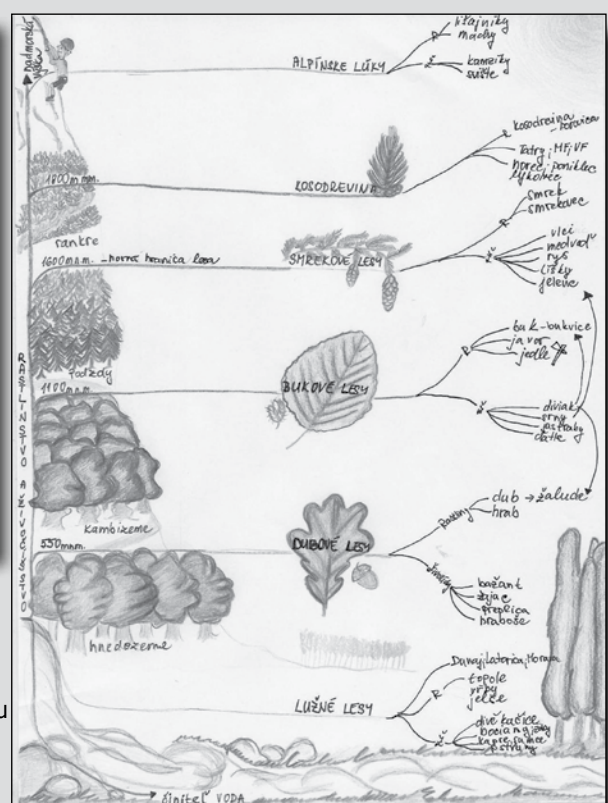 nadmorská
výška
ALPÍNSKE LÚKY
R
lišajníky
machy
Ž
kamzíky
svište
1800 m nm.
KOSODREVINA
kosodrevina
- borovica
Tatry, MF, VF
horec, poniklec
lykovec
rankre
1600 m nm. - horná hranica lesa
SMREKOVÉ LESY
R
smrek
smrekovec
Ž
vlci
medveď
rys
líšky
jelene
podzdy
1100 m nm.
BUKOVÉ LESY
R
buk - bukvice
javor
jedle
Ž
diviak
srny
jastraby
ďatle
kambizeme
550 m nm.
DUBOVÉ LESY
Rastliny
dub → žalude
hrab
Živočíchy
bažant
zajac
prepelica
hraboše
hnedozeme
LUŽNÉ LESY
Dunaj, Latorica, Morava
R
topole
vŕby
jelše
Ž
divé kačice
pstruhy
RASTLINSTVO A ŽIVOČÍŠSTVO
činiteľ VODA
u